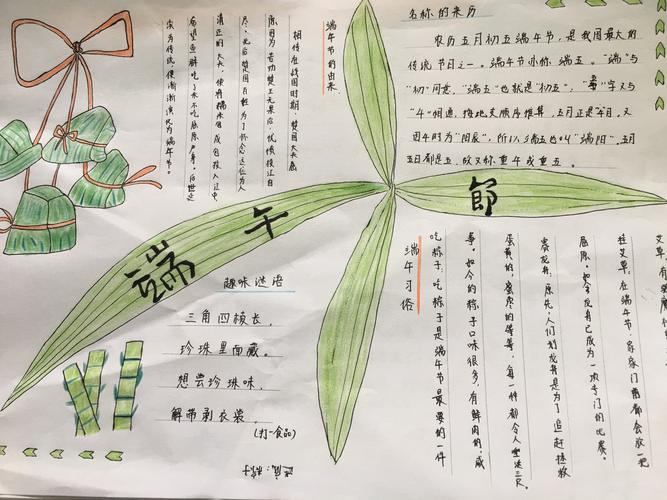 名称的来历
农历五月初五端午节，是我国最大的
传统节日之一。端午节亦称端五。"端"与
"初"同意，"端五"也就是"初五"，"五"字又与
"午"相通，按地支顺序推算，五月正是"午"月。又
因午时为"阳辰"，所以端五也叫"端阳"，五月
五日都是五，故又称重午或重五。
端午节的由来
相传在战国时期，楚国大夫屈
原因苦劝楚王无果后，忧愤投江自
尽。此后楚国百姓为了怀念这位为人
清正的大夫，便将糯米团成包投入江中，
希望鱼虾吃了不吃屈原尸身，后世
为传统便渐渐演化为端午节。
端午節
趣味谜语
三角四棱长，
珍珠里面藏。
想尝珍珠味，
解带剥衣裳。
(打一食品)
谜底：粽子
端午习俗
吃粽子：吃粽子是端午节最要的一件
事，如今的粽子口味很多，有鲜肉的，咸
蛋黄的，蜜枣的等等，每一种都令人垂涎三尺。
赛龙舟：原先，人们划龙舟是为了追赶拯救
屈原，如今龙舟已成为一项专门的比赛。
挂艾草：在端午节，家家门首都会放一把
艾草，有